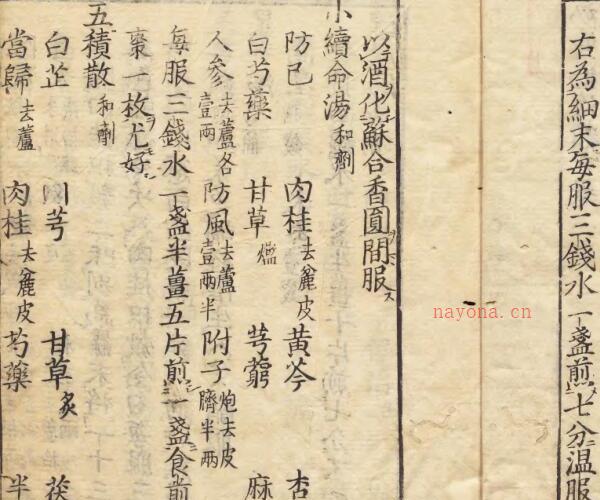 右為細末每服三錢水一盞煎七分溫服
以酒化蘇合香圓間服
小續命湯和劑
防己 肉桂去麄皮 黃芩 杏
白芍藥 甘草爁 芎藭 麻
人參去蘆各壹兩 防風去蘆壹兩半 附子炮去皮臍半兩
每服三錢水一盞半薑五片煎一盞食前
棗一枚尤好
五積散和劑
白芷 川芎 甘草炙 茯
當歸去蘆 肉桂去麄皮 芍藥 半
nayona.cn